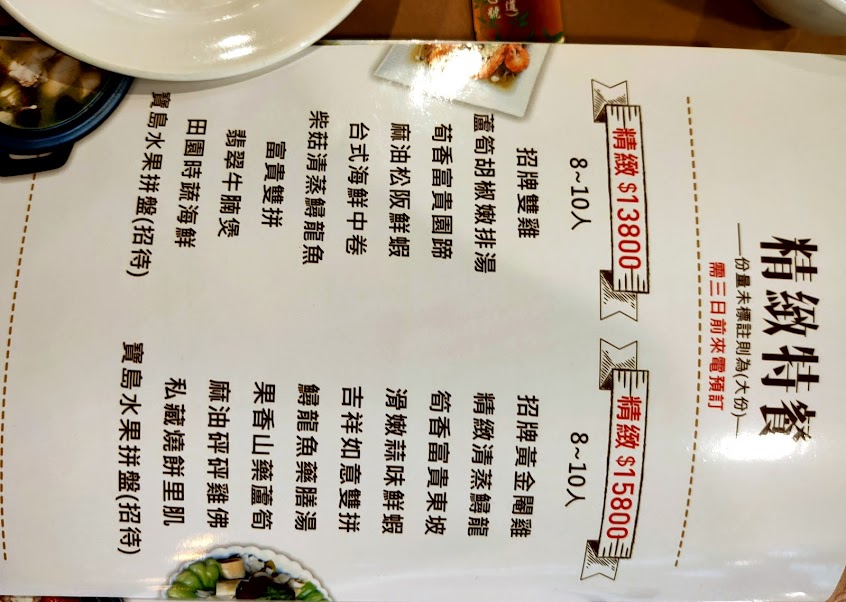 精緻特餐
份量未標註則為(大份)
需三日前來電預訂
精緻 $13800
8~10人
招牌雙雞
蘆筍胡椒嫩排湯
荀香富貴圓蹄
麻油松阪鮮蝦
台式海鮮中卷
柴菇清蒸鱘龍魚
富貴雙拼
翡翠牛腩煲
田園時蔬海鮮
寶島水果拼盤(招待)
精緻 $15800
8~10人
招牌黃金閹雞
精緻清蒸鱘龍
筍香富貴東坡
滑嫩蒜味鮮蝦
吉祥如意雙拼
鱘龍魚藥膳湯
果香山藥蘆筍
麻油砰砰雞佛
私藏燒餅里肌
寶島水果拼盤(招待)